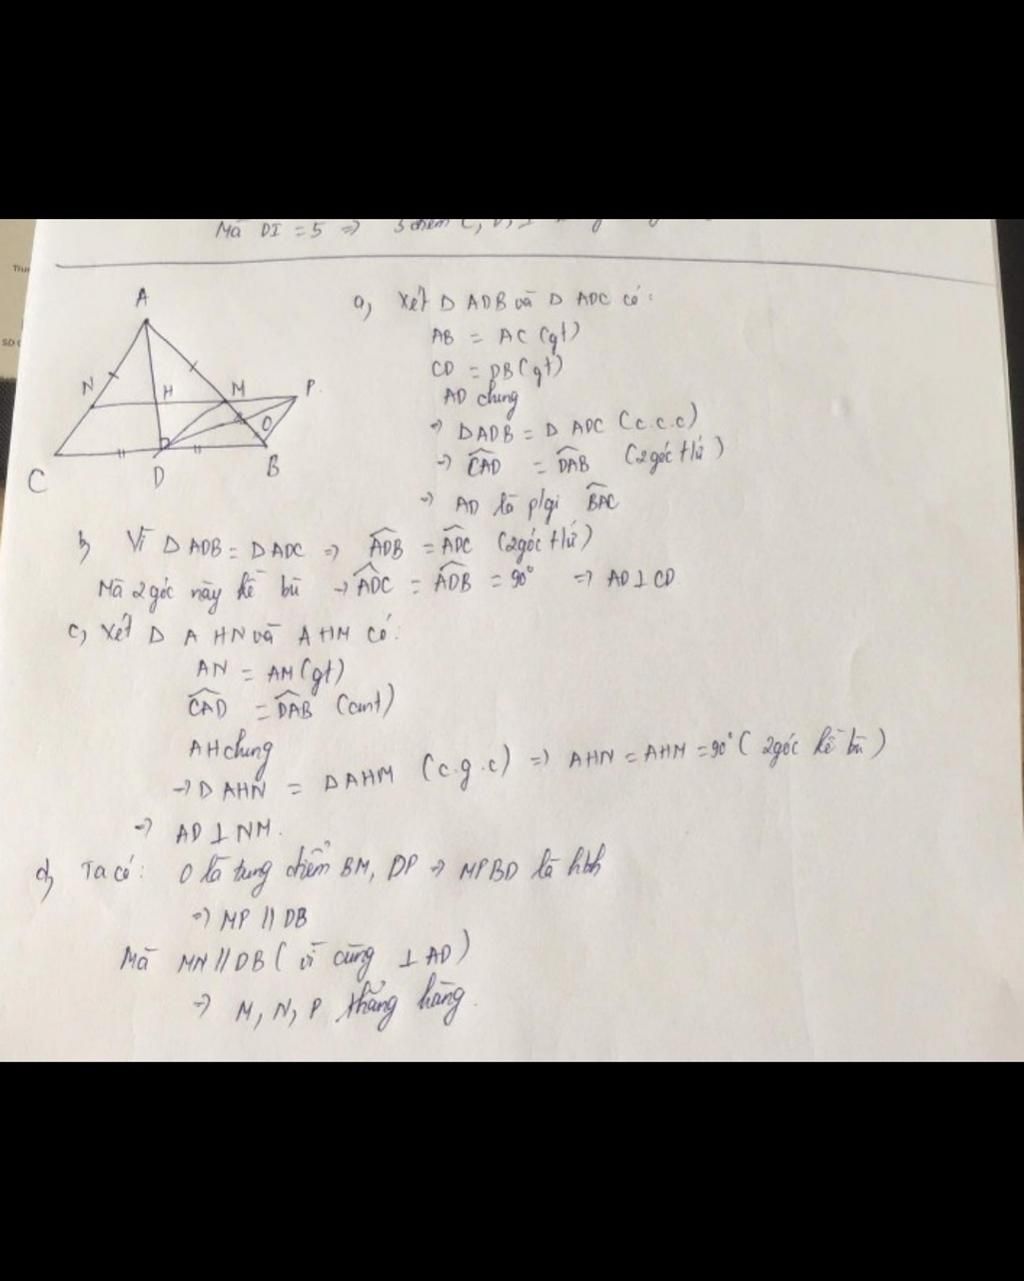 Mà DI = 5 =>
Trun
SD
A
N
H
M
P
O
C
D
B
a, Xét Δ ADB và Δ ADC có:
AB = AC (gt)
CD = DB (gt)
AD chung
=> ΔADB = Δ ADC (c.c.c)
=> \widehat{CAD} = \widehat{DAB} (2góc tứ)
=> AD là p/gi \widehat{BAC}
b, Vì Δ ADB = Δ ADC => \widehat{ADB} = \widehat{ADC} (2góc tứ)
Mà 2 góc này kề bù => \widehat{ADC} = \widehat{ADB} = 90° => AD ⊥ CD
c, Xét Δ AHN và AHM có:
AN = AM (gt)
\widehat{CAD} = \widehat{DAB} (cmt)
AH chung
=> Δ AHN = Δ AHM (c.g.c) => AHN = AHM = 90° (2góc kề bù)
=> AD ⊥ NM.
d, Ta có: O là trung điểm BM, DP => MPBD là hbh
=> MP // DB
Mà MN // DB (vì cùng ⊥ AD)
=> M, N, P thẳng hàng.